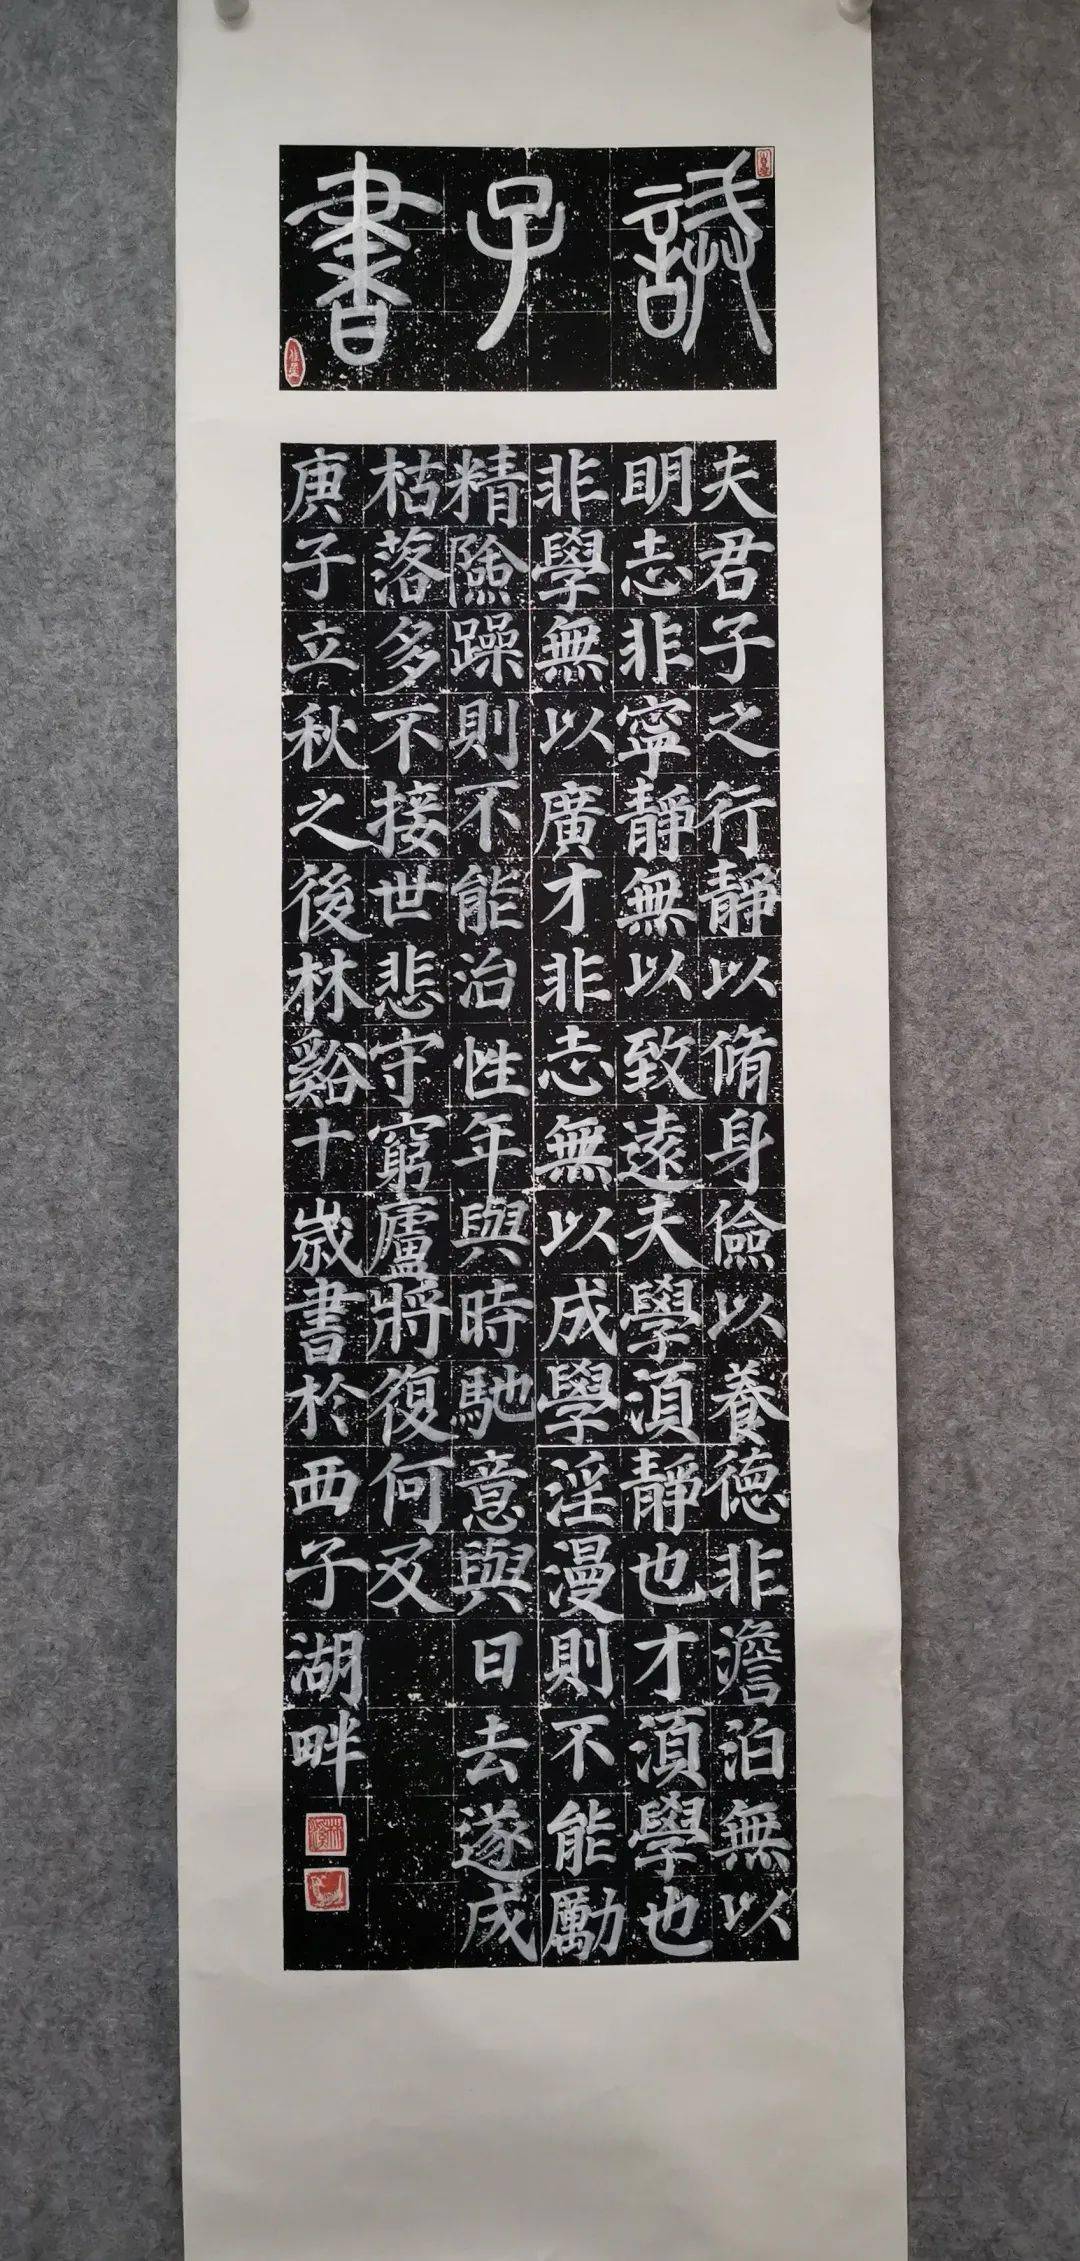 誡子書
夫君子之行靜以脩身儉以養德非澹泊無以
明志非寧靜無以致遠夫學湏靜也才湏學也
非學無以廣才非志無以成學淫漫則不能勵
精險躁則不能治性年與時馳意與日去遂成
枯落多不接世悲守窮廬將復何及
庚子立秋之後林谿十歲書於西子湖畔